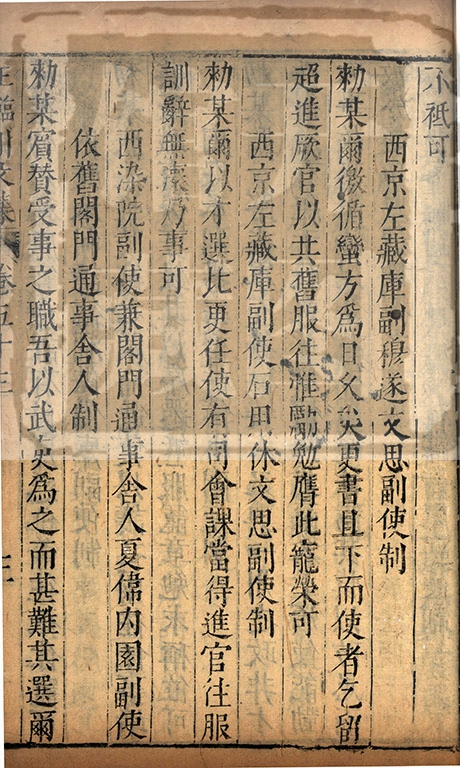 不祗可
西京左藏庫副穆遂文思副使制
勑某爾徼循蠻方為日久矣更書且下而使者乞留
超進厥官以共舊服往惟勵勉膺此寵榮可
西京左藏庫副使石用休文思副使制
勑某爾以才選比更任使有司會課當得進官往服
訓辭無瘝乃事可
西染院副使兼閤門通事舍人夏偉內園副使
依舊閤門通事舍人制
勑某賓贊受事之職吾以武吏為之而甚難其選爾
王臨川文集 卷五十三